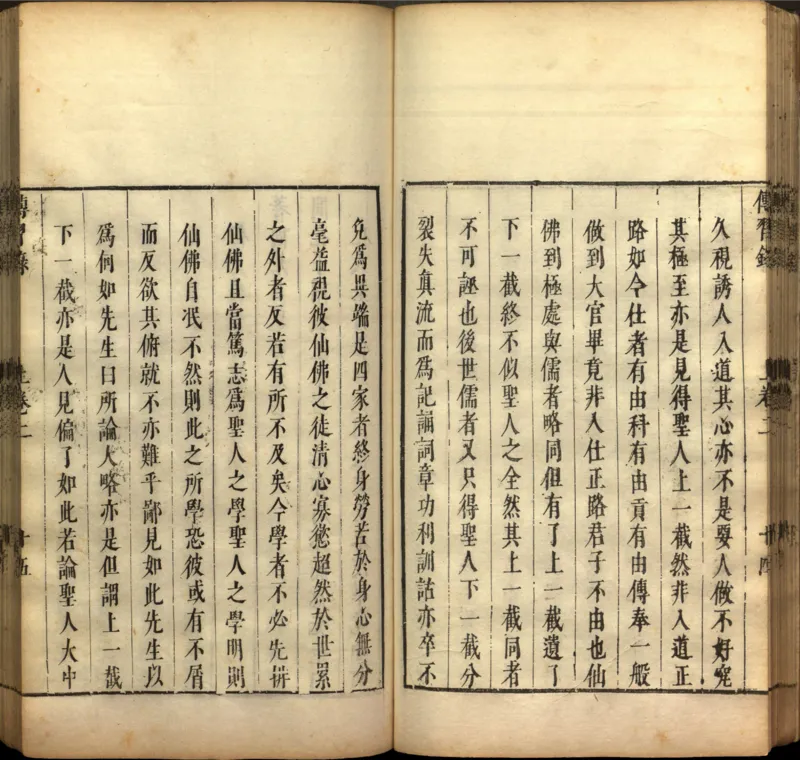 傳習錄
上卷二
十四
久視誘人入道其心亦不是要人做不好究
其極至亦是見得聖人上一截然非入道正
路如今仕者有由科有由貢有由傳奉一般
做到大官畢竟非入仕正路君子不由也仙
佛到極處與儒者略同但有了上一截遺了
下一截終不似聖人之全然其上一截同者
不可誣也後世儒者又只得聖人下一截分
裂失真流而爲記誦詞章功利訓詁亦卒不
免爲異端是四家者終身勞苦於身心無分
毫益視彼仙佛之徒清心寡慾超然於世累
之外者反若有所不及矣今學者不必先排
仙佛且當篤志爲聖人之學聖人之學明則
仙佛自泯不然則此之所學恐彼或有不屑
而反欲其俯就不亦難乎鄙見如此先生以
爲何如先生曰所論大略亦是但謂上一截
下一截亦是人見偏了如此若論聖人大中
傳習錄
上卷二
十五